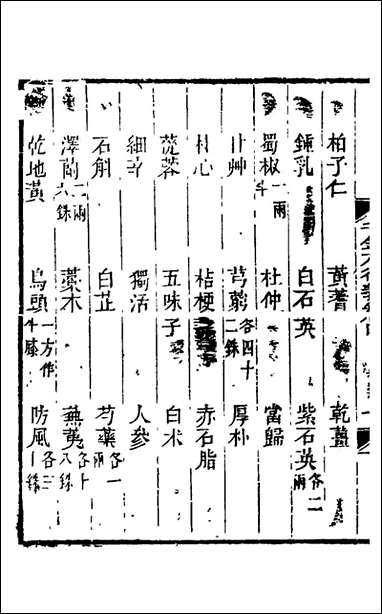 柏子仁 黃蓍 乾薑
鍾乳 白石英 紫石英各二兩
蜀椒一兩 杜仲 當歸
甘艸 芎藭各四十二銖 厚朴
桂心 桔梗 赤石脂
蓯蓉 五味子 白朮
細辛 獨活 人參
石斛 白芷 芍藥各一兩
澤蘭二兩六銖 藁木 蕪荑各十八銖
乾地黃 烏頭一方作牛膝 防風各三十銖